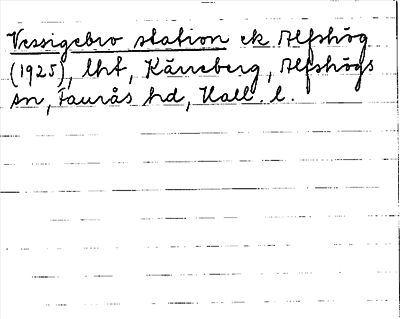 Vessigebro station ek Alfshög
(1925), lht, Kärreberg, Alfshögs
sn, Faurås hd, Hall. l.